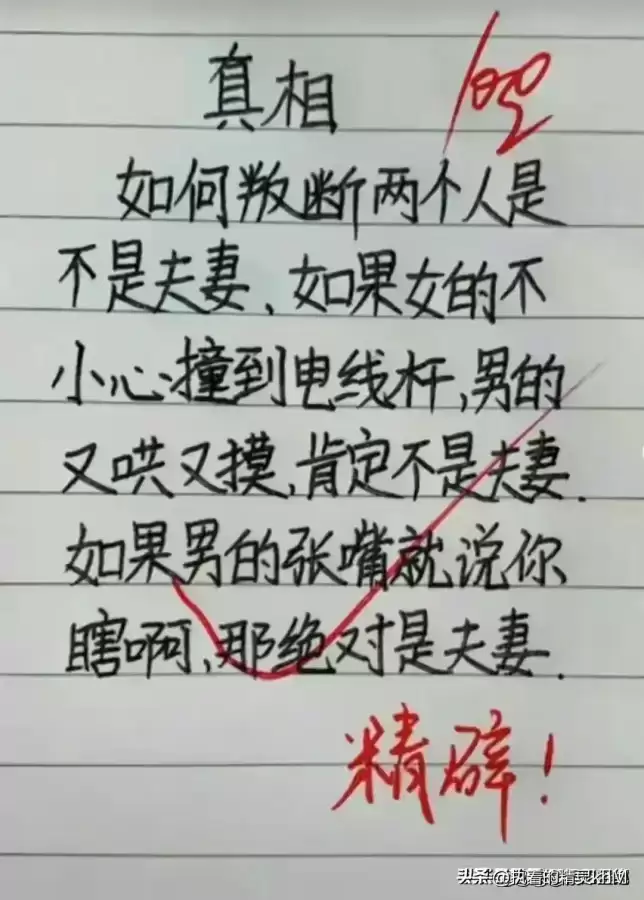 真相
100
如何叛断两个人是
不是夫妻、如果女的不
小心撞到电线杆,男的
又哄又摸,肯定不是夫妻.
如果男的张嘴就说你
瞎啊,那绝对是夫妻.
精辟!
头条@执着的精灵